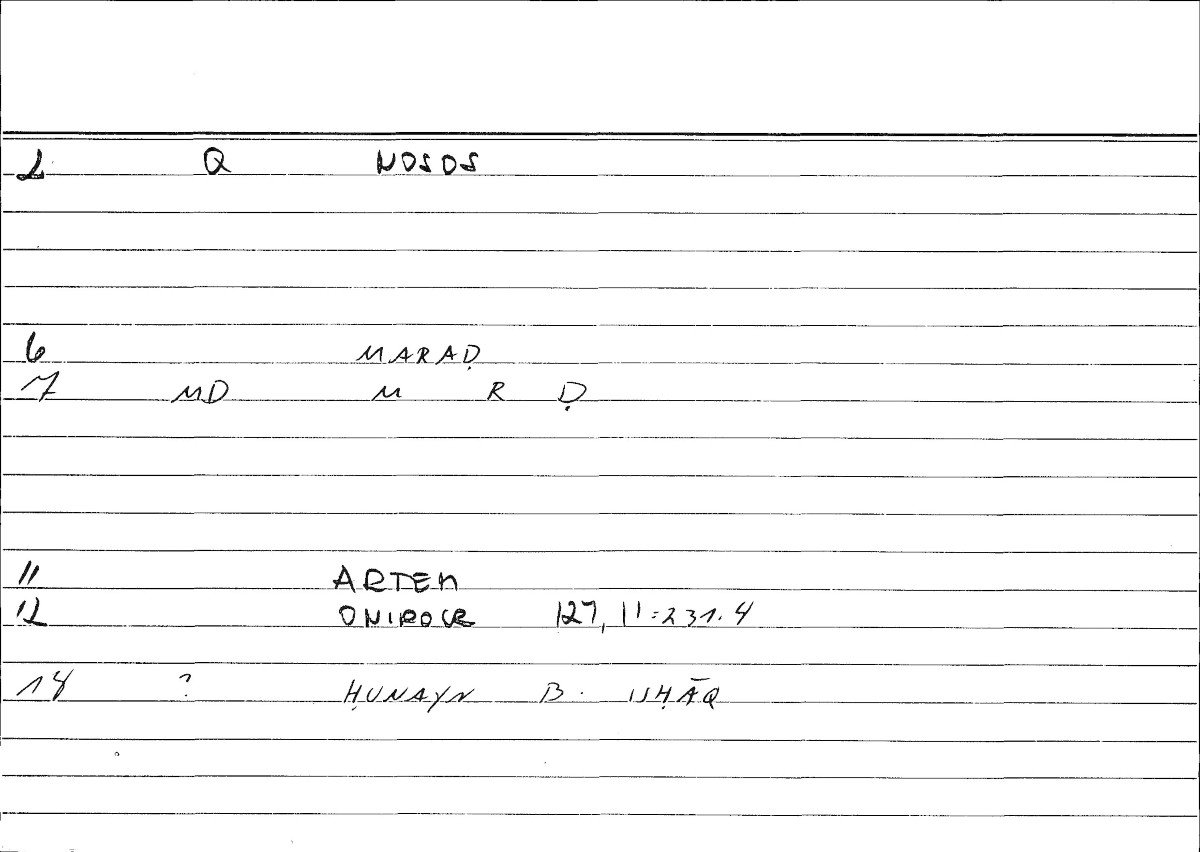 2 Q NOSOS
6 MARAḌ
7 MD M R Ḍ
11 ARTEM
12 ONIROCR 127,11:231.4
18 ? ḤUNAYN B. ISḤĀQ